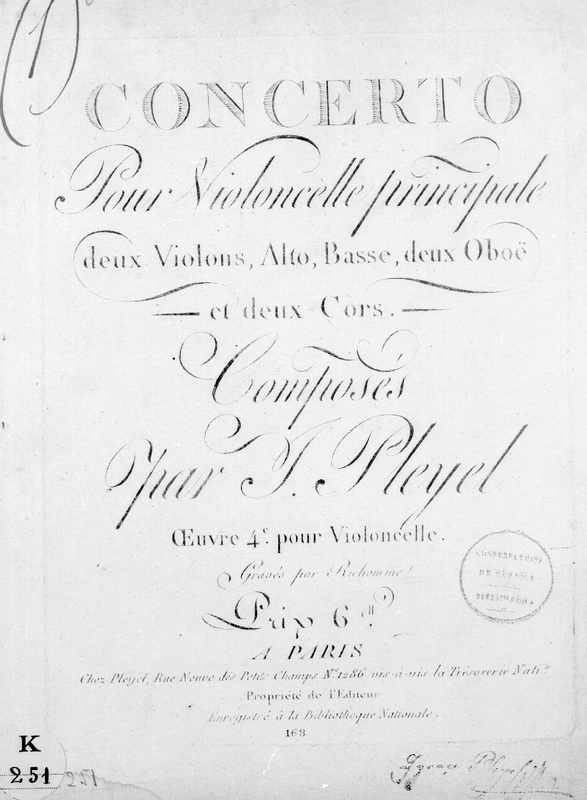 1
CONCERTO
Pour Violoncelle principale
deux Violons, Alto, Basse, deux Oboë
et deux Cors.
Composés
par J. Pleyel
Œuvre 4e. pour Violoncelle.
Gravés par Richomme
CONSERVATOIRE
DE MUSIQUE
BIBLIOTHÈQUE
Prix 6tt.
A PARIS
Chez Pleyel, Rue Neuve des Petits Champs No. 1286 vis-à-vis la Trésorerie Natle.
Propriété de l'Editeur
Enregistré à la Bibliothèque Nationale.
168
K
251
251
Ignace Pleyel